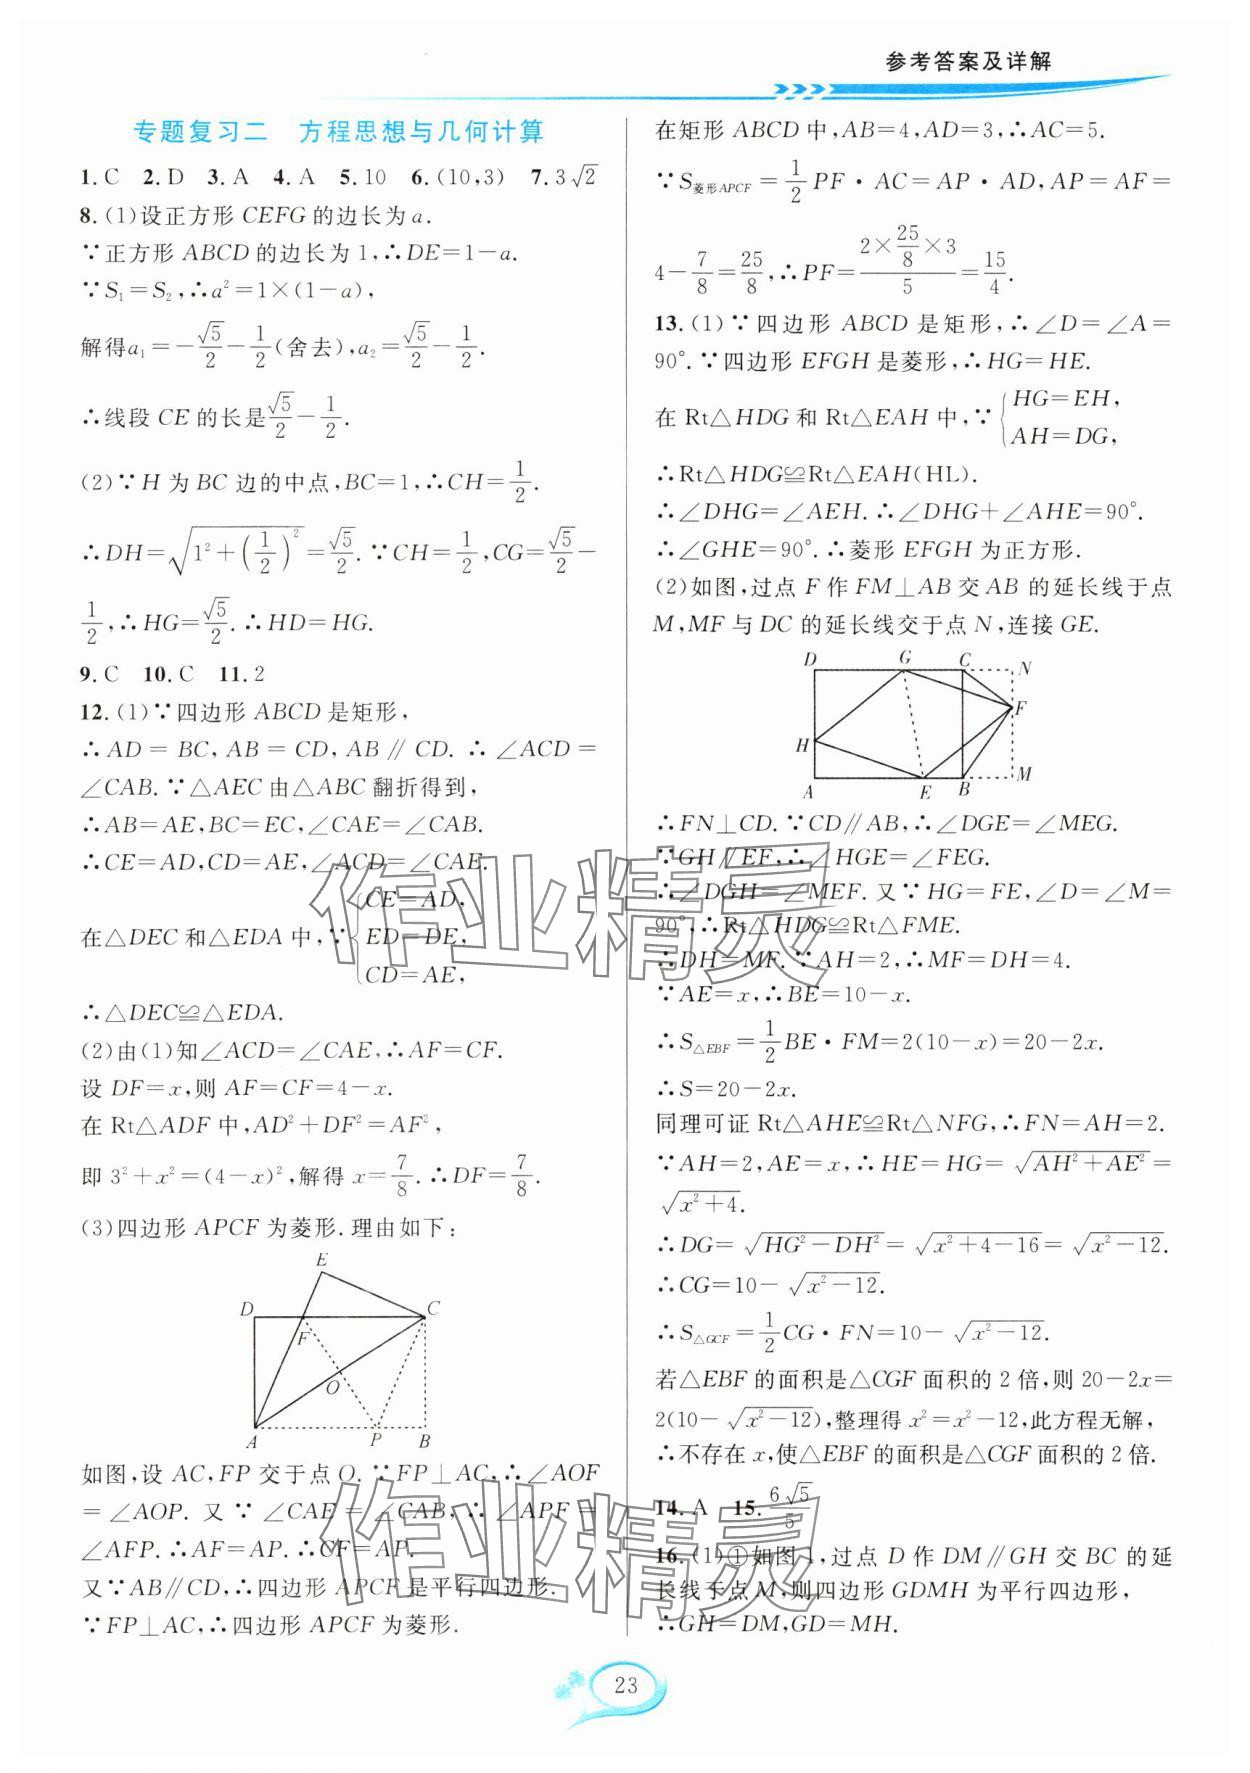 参考答案及详解
专题复习二 方程思想与几何计算
1.C 2.D 3.A 4.A 5.10 6.(10,3) 7.3√2
8.(1)设正方形 CEFG 的边长为 a.
∵正方形 ABCD 的边长为 1,∴DE=1-a.
∵S₁=S₂,∴a²=1×(1-a),
解得a₁=-√5/2-1/2(舍去),a₂=√5/2-1/2.
∴线段 CE 的长是√5/2-1/2.
(2)∵H 为 BC 边的中点,BC=1,∴CH=1/2.
∴DH=√(1²+(1/2)²)=√5/2.∵CH=1/2,CG=√5/2-
1/2,∴HG=√5/2.∴HD=HG.
9.C 10.C 11.2
12.(1)∵四边形 ABCD 是矩形,
∴AD=BC,AB=CD,AB∥CD.∴∠ACD=
∠CAB.∵△AEC 由△ABC 翻折得到,
∴AB=AE,BC=EC,∠CAE=∠CAB.
∴CE=AD,CD=AE,∠ACD=∠CAE.
CE=AD,
在△DEC 和△EDA 中,∵{ED=DE,
CD=AE,
∴△DEC≌△EDA.
(2)由(1)知∠ACD=∠CAE,∴AF=CF.
设 DF=x,则 AF=CF=4-x.
在 Rt△ADF 中,AD²+DF²=AF²,
即 3²+x²=(4-x)²,解得 x=7/8.∴DF=7/8.
(3)四边形 APCF 为菱形.理由如下:
E
D C
F
O
A P B
如图,设 AC,FP 交于点 O.∵FP⊥AC,∴∠AOF
=∠AOP.又∵∠CAE=∠CAB,∴∠APF=
∠AFP.∴AF=AP.∴CF=AP.
又∵AB∥CD,∴四边形 APCF 是平行四边形.
∵FP⊥AC,∴四边形 APCF 为菱形.
在矩形 ABCD 中,AB=4,AD=3,∴AC=5.
∵S菱形APCF=1/2PF·AC=AP·AD,AP=AF=
4-7/8=25/8,∴PF=(2×25/8×3)/5=15/4.
13.(1)∵四边形 ABCD 是矩形,∴∠D=∠A=
90°.∵四边形 EFGH 是菱形,∴HG=HE.
在 Rt△HDG 和 Rt△EAH 中,∵{HG=EH,
AH=DG,
∴Rt△HDG≌Rt△EAH(HL).
∴∠DHG=∠AEH.∴∠DHG+∠AHE=90°.
∴∠GHE=90°.∴菱形 EFGH 为正方形.
(2)如图,过点 F 作 FM⊥AB 交 AB 的延长线于点
M,MF 与 DC 的延长线交于点 N,连接 GE.
D G C N
F
H
A E B M
∴FN⊥CD.∵CD∥AB,∴∠DGE=∠MEG.
∵GH∥EF,∴∠HGE=∠FEG.
∴∠DGH=∠MEF.又∵HG=FE,∠D=∠M=
90°,∴Rt△HDG≌Rt△FME.
∴DH=MF.∵AH=2,∴MF=DH=4.
∵AE=x,∴BE=10-x.
∴S△EBF=1/2BE·FM=2(10-x)=20-2x.
∴S=20-2x.
同理可证 Rt△AHE≌Rt△NFG,∴FN=AH=2.
∵AH=2,AE=x,∴HE=HG=√(AH²+AE²)=
√(x²+4).
∴DG=√(HG²-DH²)=√(x²+4-16)=√(x²-12).
∴CG=10-√(x²-12).
∴S△GCF=1/2CG·FN=10-√(x²-12).
若△EBF 的面积是△CGF 面积的 2 倍,则 20-2x=
2(10-√(x²-12)),整理得 x²=x²-12,此方程无解,
∴不存在 x,使△EBF 的面积是△CGF 面积的 2 倍.
14.A 15.6√5/5
16.(1)①如图 1,过点 D 作 DM∥GH 交 BC 的延
长线于点 M,则四边形 GDMH 为平行四边形,
∴GH=DM,GD=MH.
作业精灵
作业精灵
23